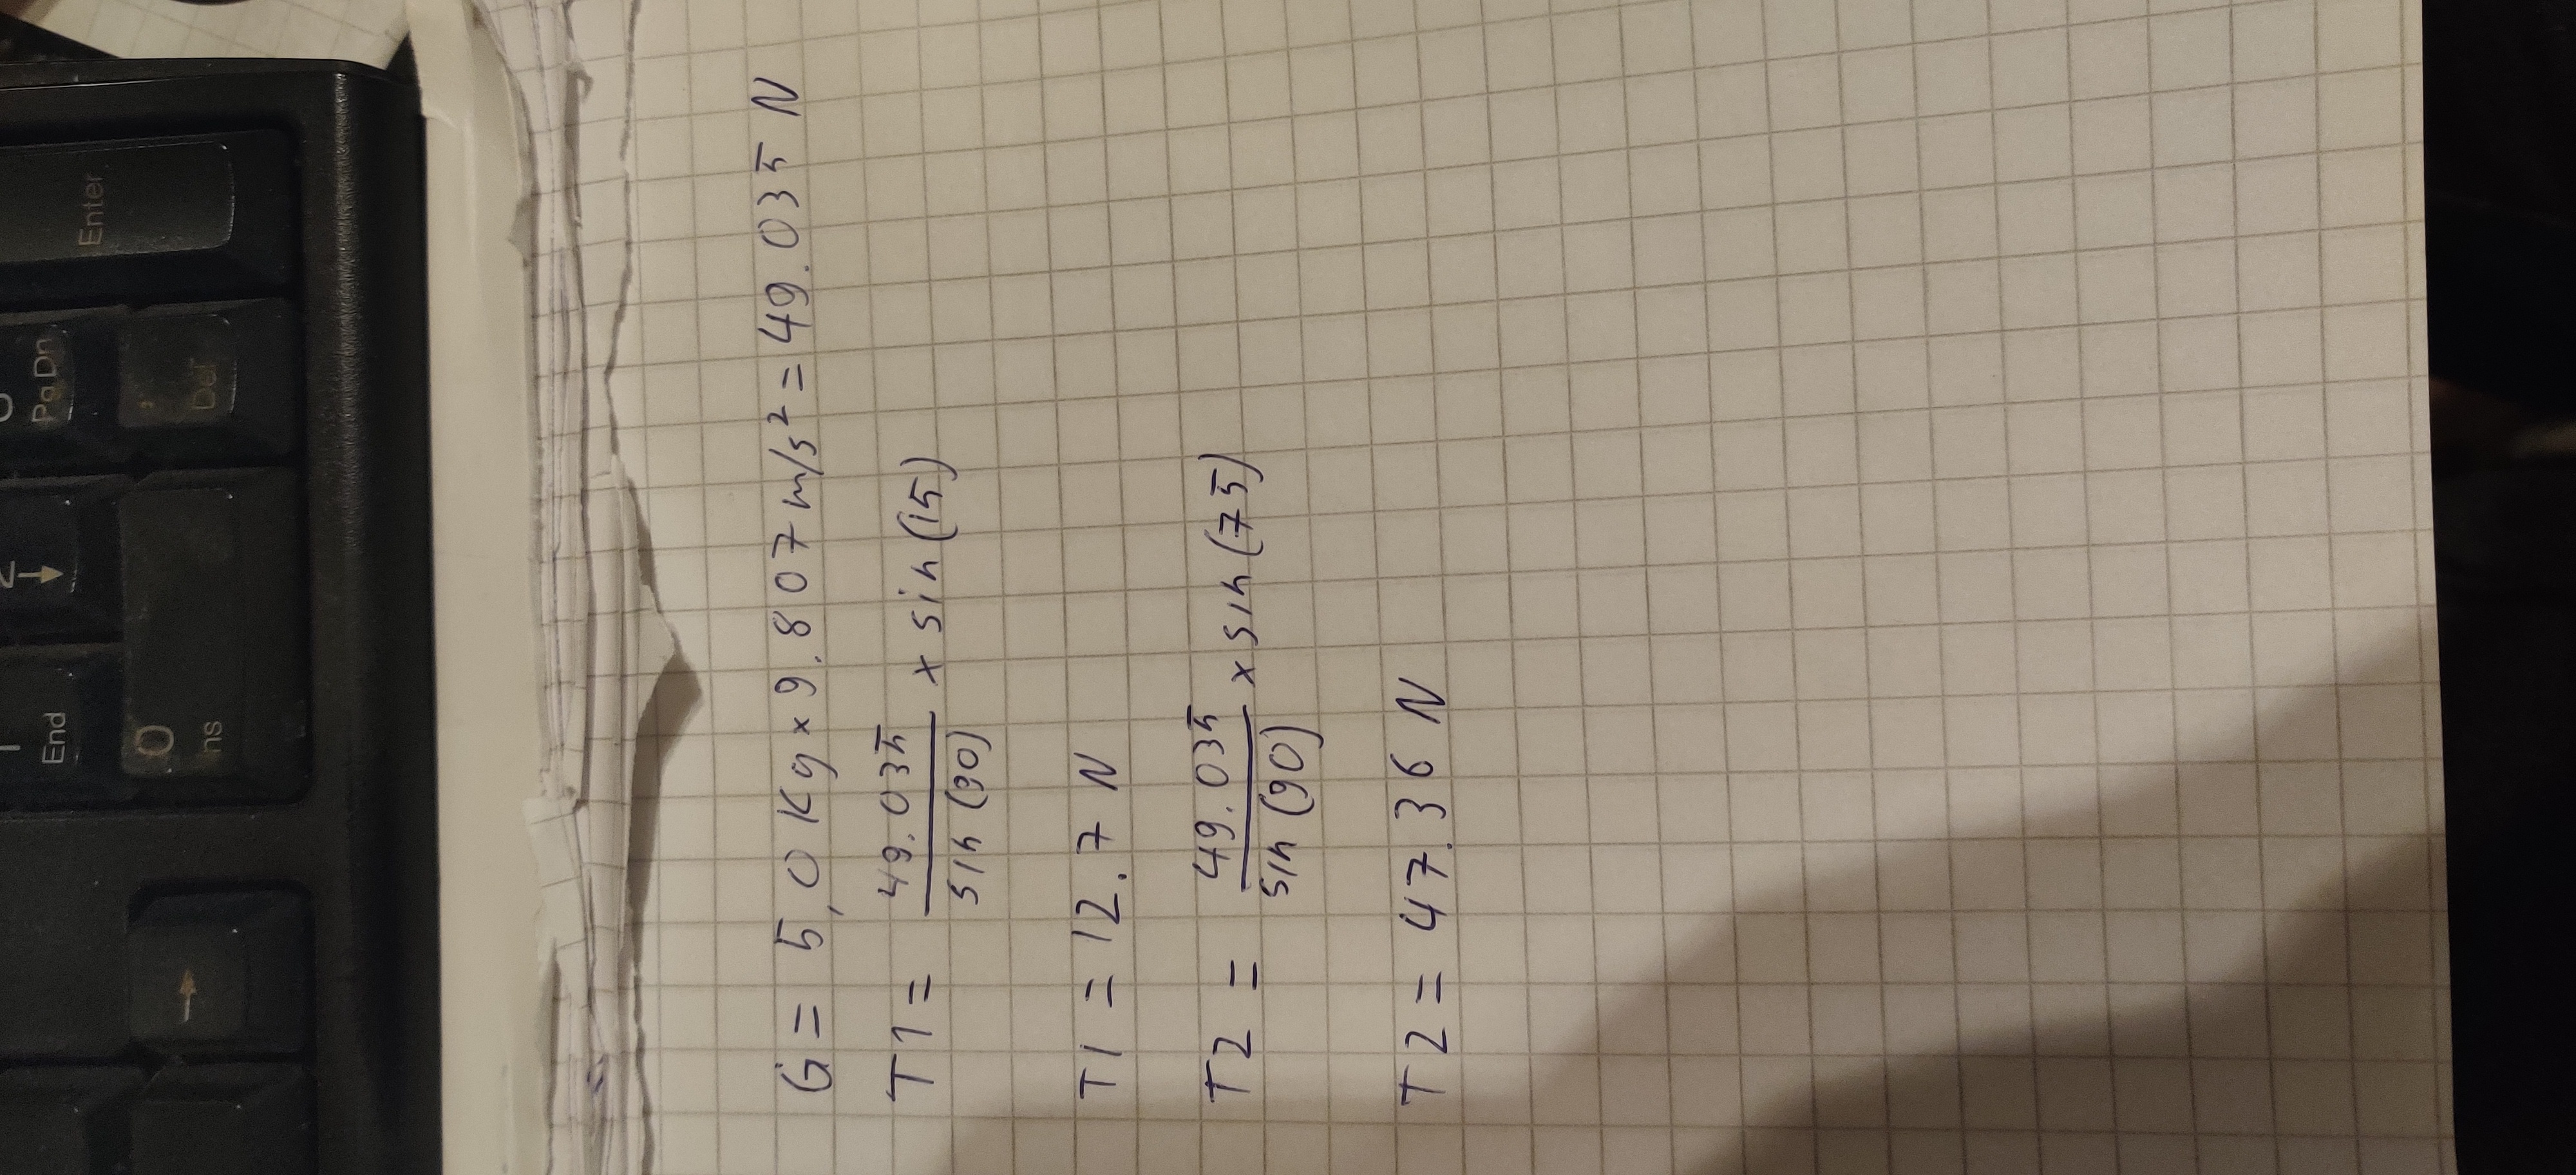 End
Pg Dn
Enter
0
ns
,
Del
G = 5,0 Kg × 9.807 m/s² = 49.035 N
T1 = 49.035 / sin(90) × sin(15)
T1 = 12.7 N
T2 = 49.035 / sin(90) × sin(75)
T2 = 47.36 N